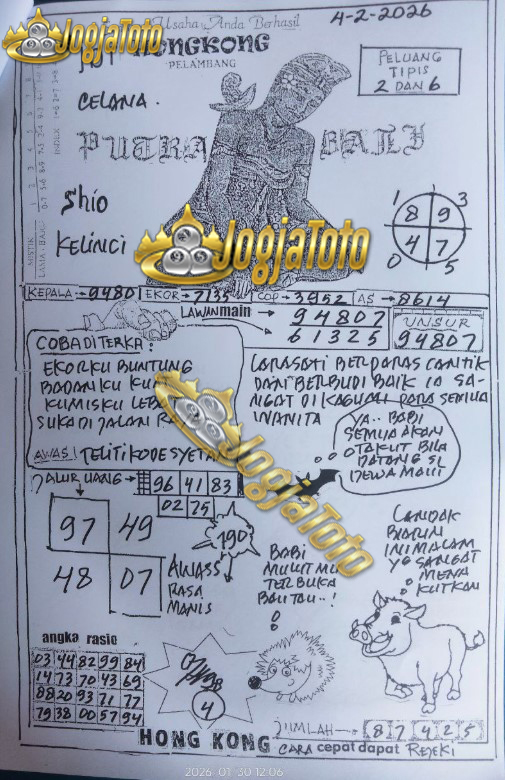 Usaha Anda Berhasil
4-2-2026
JogjaToto
HONGKONG
PELAMBANG
PELUANG
TIPIS
2 DAN 6
CELANA
PUTRA BALI
Shio
KELINCI
JogjaToto
1 3
8 9
4 7
0 5
KEPALA → 94801 EKOR → 7135 COP → 3952 AS → 8614
LAWAN main → 94807
61325
UNSUR
94807
COBA DITERKA :
EKORKU BUNTUNG
BADANKU
KUMISKU
SUKA DI JALAN
AWAS ! TELITI KODE SYETAN
LARASATI BERPARAS CANTIK
DAN BERBUDI BAIK IA SA-
NGAT DI KAGUMI PARA SEMUA
WANITA
YA.. BABI
SEMUA AKAN
TAKUT BILA
DATANG SI
DEWA MAUT
JogjaToto
JALUR UANG → 96 41 83
02 75
97 49
48 07
190
AWASS
RASA
MANIS
BABI
MULUTMU
TERBUKA
..!
INI MALAM
YG SANGAT
MENA
KUTKAN
angka rasio
03 44 82 99 84
14 73 70 43 69
88 20 93 71 77
79 38 00 57 94
4
JUMLAH → 8 7 4 2 5
HONG KONG CARA cepat dapat REJEKI
2026-01-30 12:06